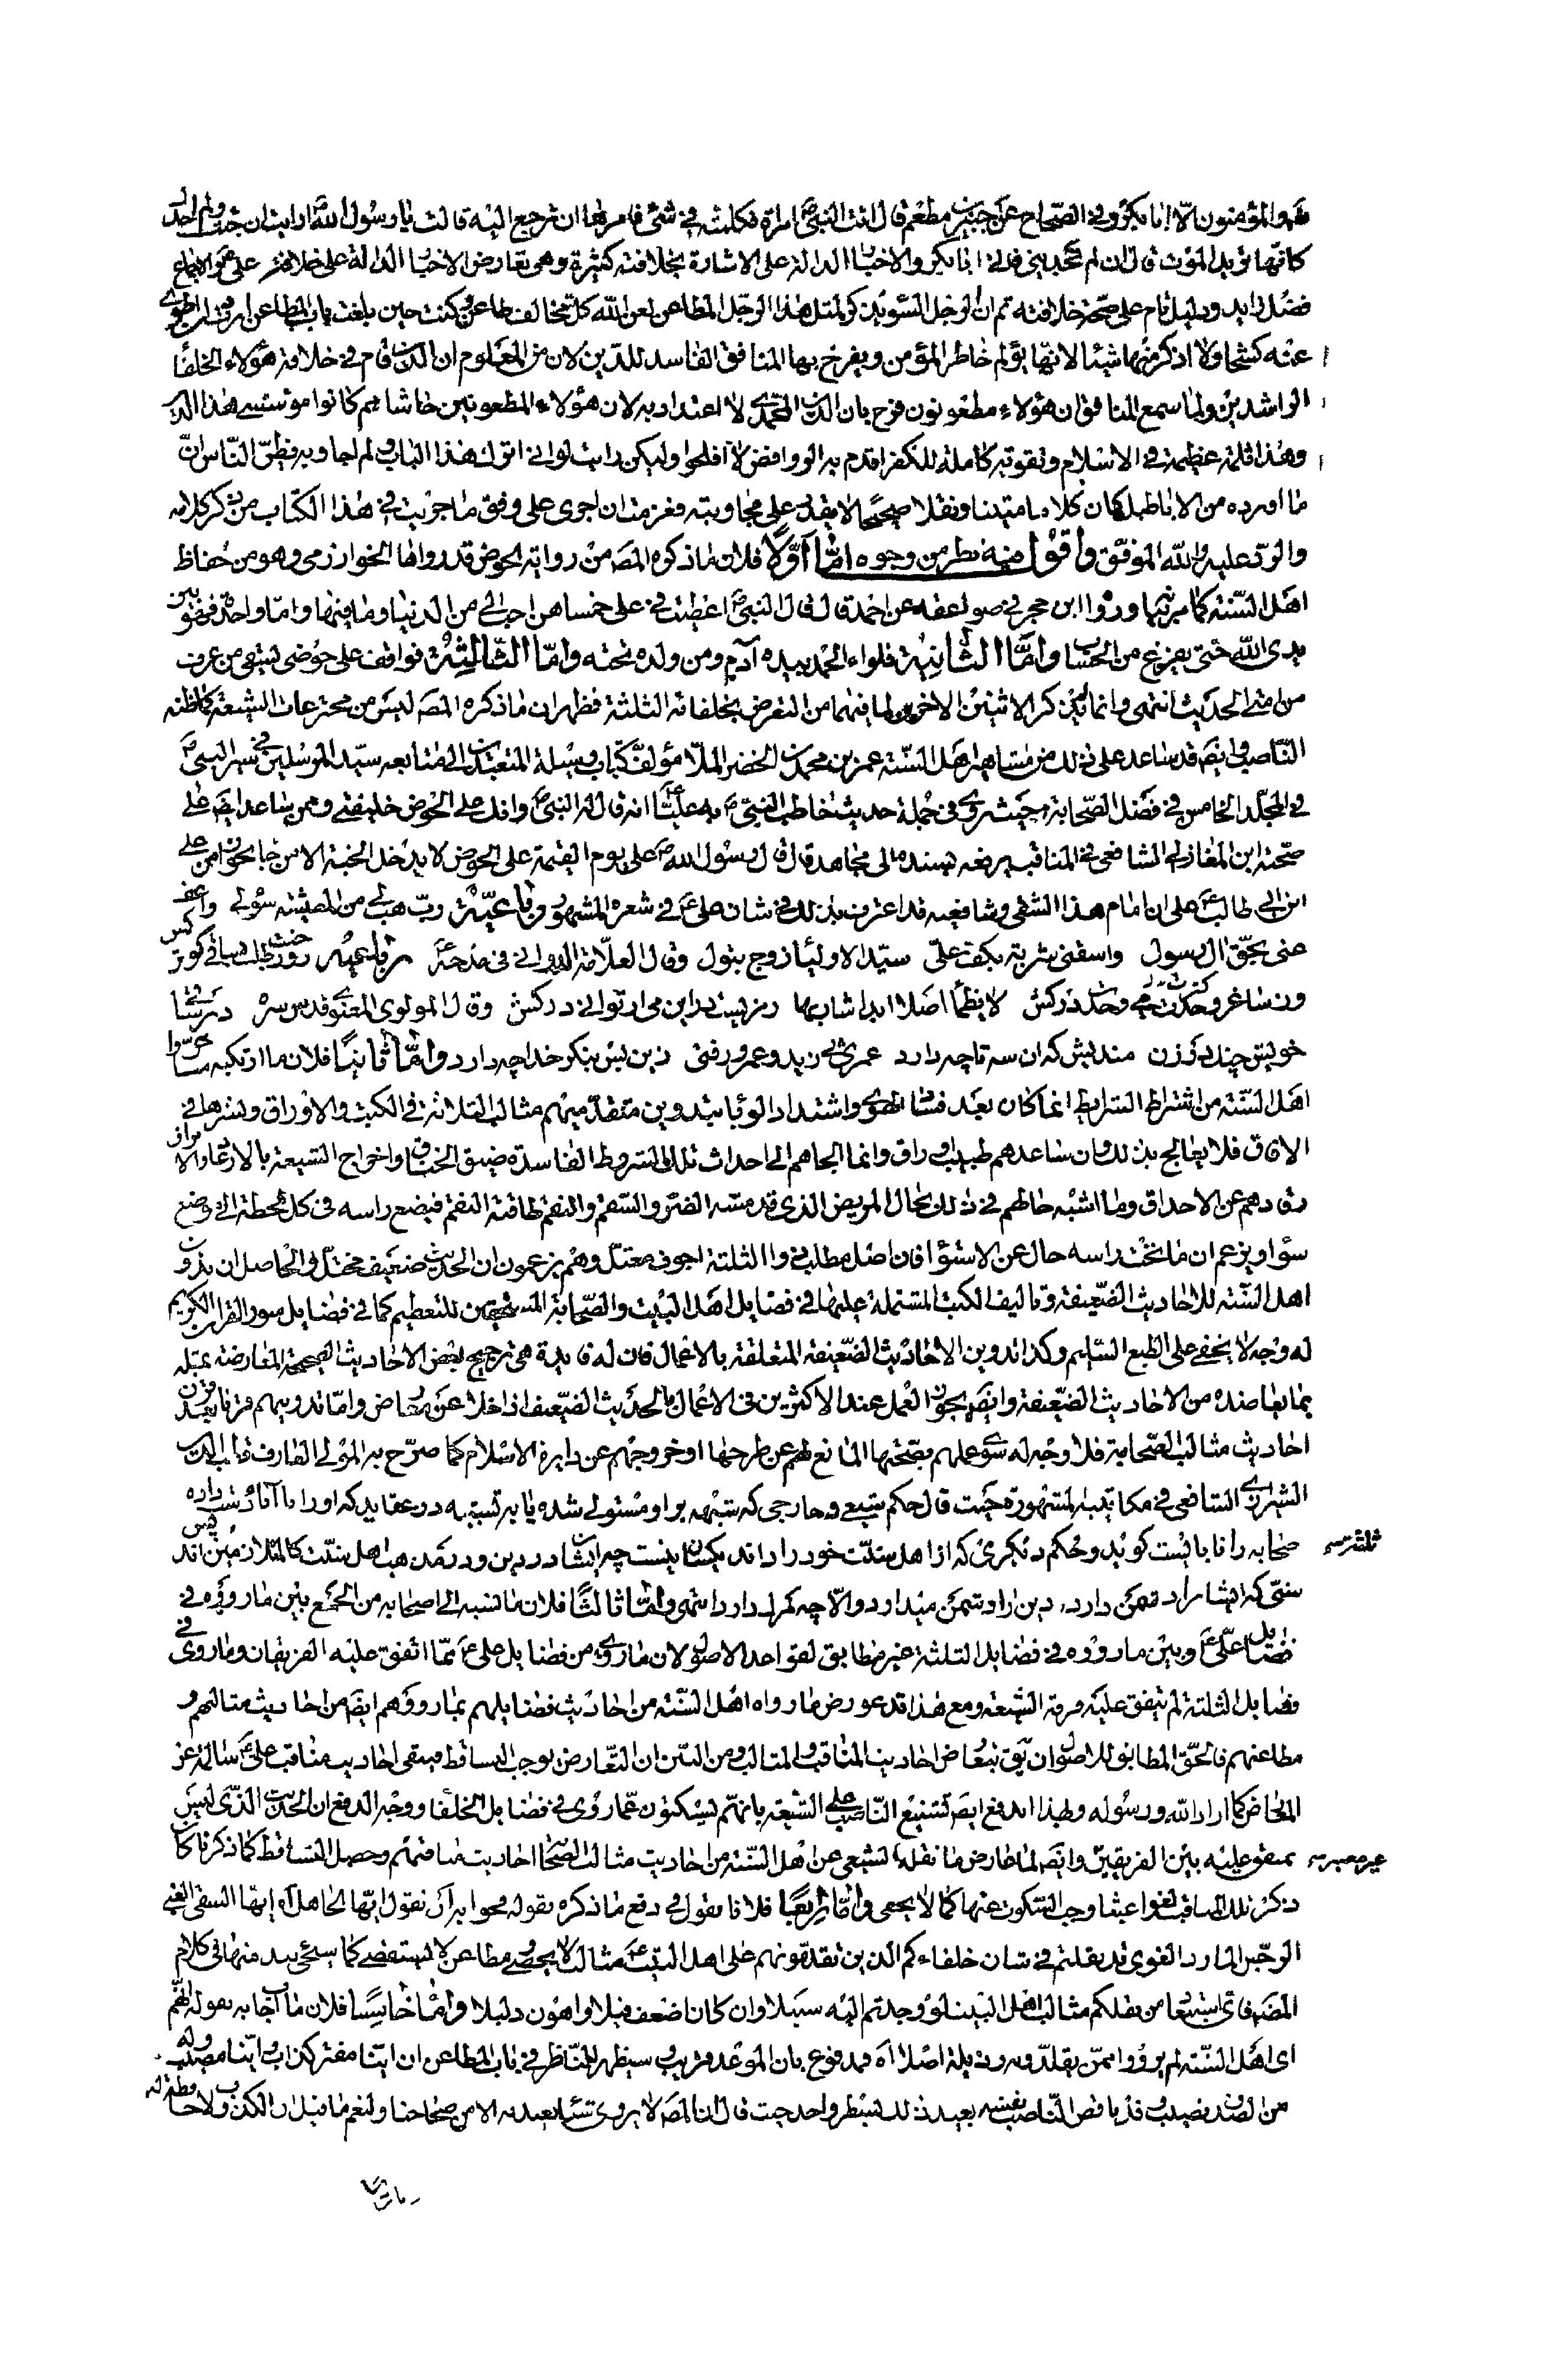 الله والمؤمنون الا ابا بكر وفي الصحاح عن جبير بن مطعم قال اتت النبي ص امراة فكلمته في شئ فامرها ان ترجع اليه قالت يا رسول الله ارايت ان جئت ولم اجدك
كانها تريد الموت قال ان لم تجديني فاتي ابا بكر والاخبار الدالة على الاشارة بخلافته كثيرة وهي تعارض الاخبار الدالة على خلافة علي وهو الاجماع
فضل زايد ودليل تام على صحة خلافته ثم ان الرجل السوء يذكر لمثل هذا الرجل المطاعن لعن الله كل مخالف طاعن وكنت حين بلغت باب المطاعن اردت ان اطوي
عنه كشحا ولا اذكر منها شيئا لانها يؤلم خاطر المؤمن ويفرح بها المنافق الفاسد للدين لان من المعلوم ان الدين قام في خلافة هؤلاء الخلفا
الراشدين ولما سمع المنافق ان هؤلاء مطعونون فرح بان الدين المحمدي لا اعتداد به لان هؤلاء المطعونين حاشاهم كانوا مؤسسي هذا الدين
وهذا ثلمة عظيمة في الاسلام وتقوية كاملة للكفر اقدم به الروافض لا افلحوا وليكن رايت لو اني اترك هذا الباب ولم اجاوبه فيظن الناس ان
ما اورده من الاباطيل كان كلاما متينا ونقلا صحيحا لا يقدر على مجاوبته فعزمت ان اجري على وفق ما جريت في هذا الكتاب من ذكر كلامه
والرد عليه والله الموفق واقول فيه نظر من وجوه اما اولا فلان ما ذكره المص من رواية الحوض قد رواها الخوارزمي وهو من حفاظ
اهل السنة كما مر بيانه ورواه ابن حجر في صواعقه عن احمد قال قال النبي ص اعطيت في علي خمسا هن احب الي من الدنيا وما فيها واما واحدة فهو بين
يدي الله حتى يفرغ من الحساب واما الثانية فلواء الحمد بيده آدم ومن ولده تحته واما الثالثة فواقف على حوضي يسقي من عرف
من امتي الحديث انتهى وانما لم يذكر الاثنين الاخريين لما فيهما من التعرض بخلفائه الثلثة فظهر ان ما ذكره المص ليس من مخترعات الشيعة كما ظنه
الناصبي وايضا قد ساعد على ذلك من مشاهير اهل السنة عمر بن محمد بن الخضر الملا مؤلف كتاب وسيلة المتعبدين الى متابعة سيد المرسلين في سير النبي ص
في المجلد الخامس في فضل الصحابة حيث روى في جملة حديث خاطب النبي ص به عليا ع انه قال له النبي ص وانك على الحوض خليفتي وممن ساعد ايضا على
صحته ابن المغازلي الشافعي في المناقب يرفعه بسنده الى مجاهد قال قال رسول الله ص علي يوم القيمة على الحوض لا يدخل الجنة الا من جاء بجواز من علي
ابن ابي طالب ع على ان امام هذا الشقي وشافعيه قد اعترف بذلك في شان علي ع في شعره المشهور رباعية رب هب لي من المعيشة سؤلي واعف
عني بحق ال الرسول واسقني شربة بكف علي سيد الاوليا زوج بتول وقال العلامة الدواني في مدحه ع رباعيه روز جنت طلب ساقي كوثر كس
ون ساغر وحدت مي وحدت دركش لا يظما اصلا ابدا شاربها رمزيست در اين مي ار تواني دركش وقال المولوي المعنوي قدس سره در مرتبه شا
خويش چند دو زن منديش كه ان سه تا چه دارد عمر در پي زيد وعمرو رفتي زين پس بنگر خدا چه دارد واما ثانيا فلان ما ارتكبه
اهل السنة من اشتراط الشرايط انما كان بعد فشاء الهوى واشتداد الوباء بتدوين متقدميهم مثالب الثلاثة في الكتب والاوراق ونشرها في
الافاق فلا يعالج بذلك وان ساعدهم طبيب وراق وانما الجاهم الى احداث تلك الشروط الفاسدة ضيق الخناق واخراج الشيعة بالارعاد والابراق
رقادهم عن الاحداق وما اشبه حالهم في ذلك بحال المريض الذي قد مسه الضر والسقم والنقم طاقته النقم فيضع راسه في كل لحظة الى وضع
سؤا ويزعم ان ما تحت راسه حال عن الاستوا فان اصل مطلب رووا الثلثة اجوف معتل وهم يزعمون ان الحديث ضعيف مختل والحاصل ان تدوين
اهل السنة للاحاديث الضعيفة وتاليف الكتب المشتملة عليها في فضايل اهل البيت والصحابة المستحقين للتعظيم كما في فضايل سور القران الكريم
له وجه لا يخفى على الطبع السليم وكذا تدوين الاحاديث الضعيفة المتعلقة بالاعمال فان له فايدة هي ترجيح بعض الاحاديث الصحيحة المعارضة بمثله
بما يعاضده من الاحاديث الضعيفة وايضا يجوز العمل عند الاكثرين في الاعمال بالحديث الضعيف اذا خلا عن معارض واما تدوينهم قرنا بعد قرن
احاديث مثالب الصحابة فلا وجه له سوى علمهم بصحتها المانع لهم عن طرحها او خروجهم عن دايرة الاسلام كما صرح به المولى العارف قطب الدين
الشيرازي الشافعي في مكاتيبه المشهورة حيث قال حكم شيعي وخارجي كه شبهه بر او مستولي شده يا بر تشبيه در عقايد كه او را با آباء نسب داده
صحابه را نا بايست گويد وحكم ديگري كه از اهل سنت خود را داند يكسان نيست چه ايشان در دين ودر مذهب اهل سنت
سني كه ايشان را دشمن دارد، دين را دشمن ميدارد والا چه كم از دارد انتهى واما ثالثا فلان ما نسبه الى اصحابه من الجمع بين ما رووه في
فضايل علي ع وبين ما رووه في فضايل الثلثة غير مطابق لقواعد الاصول لان ما روي من فضايل علي ع مما اتفق عليه الفريقان وما روي في
فضايل الثلثة لم يتفق عليه فرقة الشيعة ومع هذا قد عورض ما رواه اهل السنة من احاديث فضايلهم بما رووه هم ايضا من احاديث مثالبهم و
مطاعنهم فالحق المطابق للاصول ان يق بتعارض احاديث المناقب والمثالب ومن البين ان التعارض يوجب التساقط فيبقى احاديث مناقب علي ع سالمة عن
المعارض كما اراد الله ورسوله وبهذا اندفع ايضا تشنيع الناصب على الشيعة بانهم يسكتون عما روي في فضايل الخلفا ووجه الدفع ان الحديث الذي ليس
بمتفق عليه بين الفريقين وايضا لما عارض ما نقله الشيعي عن اهل السنة من احاديث مثالب الصحابة احاديث مناقبهم وحصل التساقط كما ذكرنا كان
ذكر تلك المناقب لغوا عبثا وجب السكوت عنها كما لا يخفى واما رابعا فلانا نقول في دفع ما ذكره بقوله في جوابه ان نقول ايها الجاهل آه ايها الشقي الغبي
الرجس المارد الغوي قد نقلتم في شان خلفاءكم الذين تقدمونهم على اهل البيت ع مثالب لا يحصى ومطاعن لا يستقصى كما سيجئ نبذ منها في كلام
المص فاي استبعاد من نقلكم مثالب اهل البيت لو وجدتم اليه سبيلا وان كان اضعف قيلا واهون دليلا واما خامسا فلان ما اجاب به بقوله انهم
اى اهل السنة لم يرووا ممن يقلدونه رذيلة اصلا آه فمدفوع بان الموعد قريب وسيظهر للناظر في باب المطاعن ان اينا مفتر كذاب واينا مصيب وله
من الصدق نصيب وقد ناقض الناصب نفسه بعيد ذلك بسطر واحد حيث قال ان المص لا يروي شيئا بعيد به الا من صحاحنا ولنعم ما قيل ان الكذوب لا حافظة له